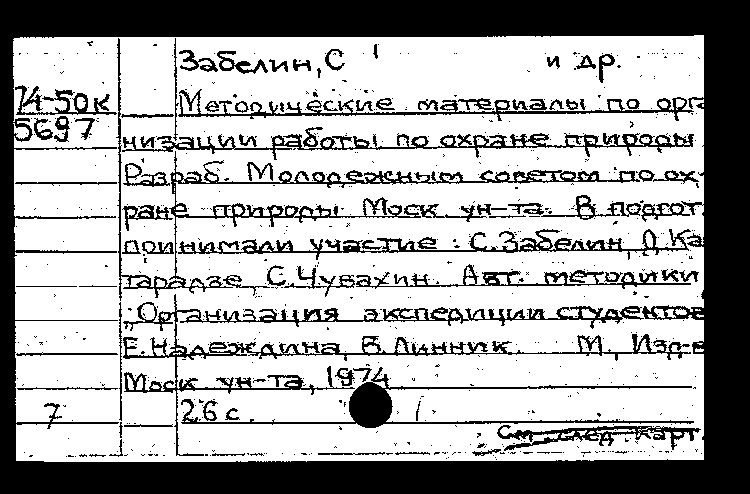 Забелин, С и др.
74-50к
Методические материалы по орга
5697
низации работы по охране природы
Разраб. Молодежным советом по ох-
ране природы Моск ун-та. В подгот.
принимали участие: С. Забелин, Д. Ка
тарадзе, С. Чувахин. Авт. методики
„Организация экспедиции студентов
Е. Надеждина, В. Линник. М., Изд-в
Моск ун-та, 1974
7 26 с.
См. след. карт.